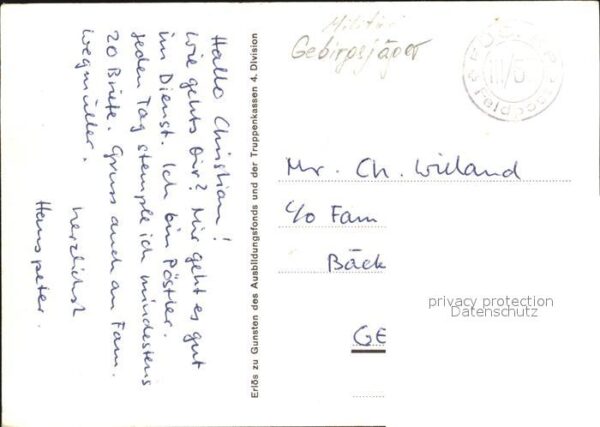 Hallo Christian!
Wie gehts Dir? Mir geht es gut
im Dienst. Ich bin Pöstler.
Jeden Tag stemple ich mindestens
20 Briefe. Gruss auch an Fam.
Wegmüller.
Herzlichst
Hanspeter.
Erlös zu Gunsten des Ausbildungsfonds und der Truppenkassen 4. Division
Militär
Gebirgsjäger
Feldpost
Mr. Ch. Wieland
c/o Fam
Bäck
GE
privacy protection
Datenschutz